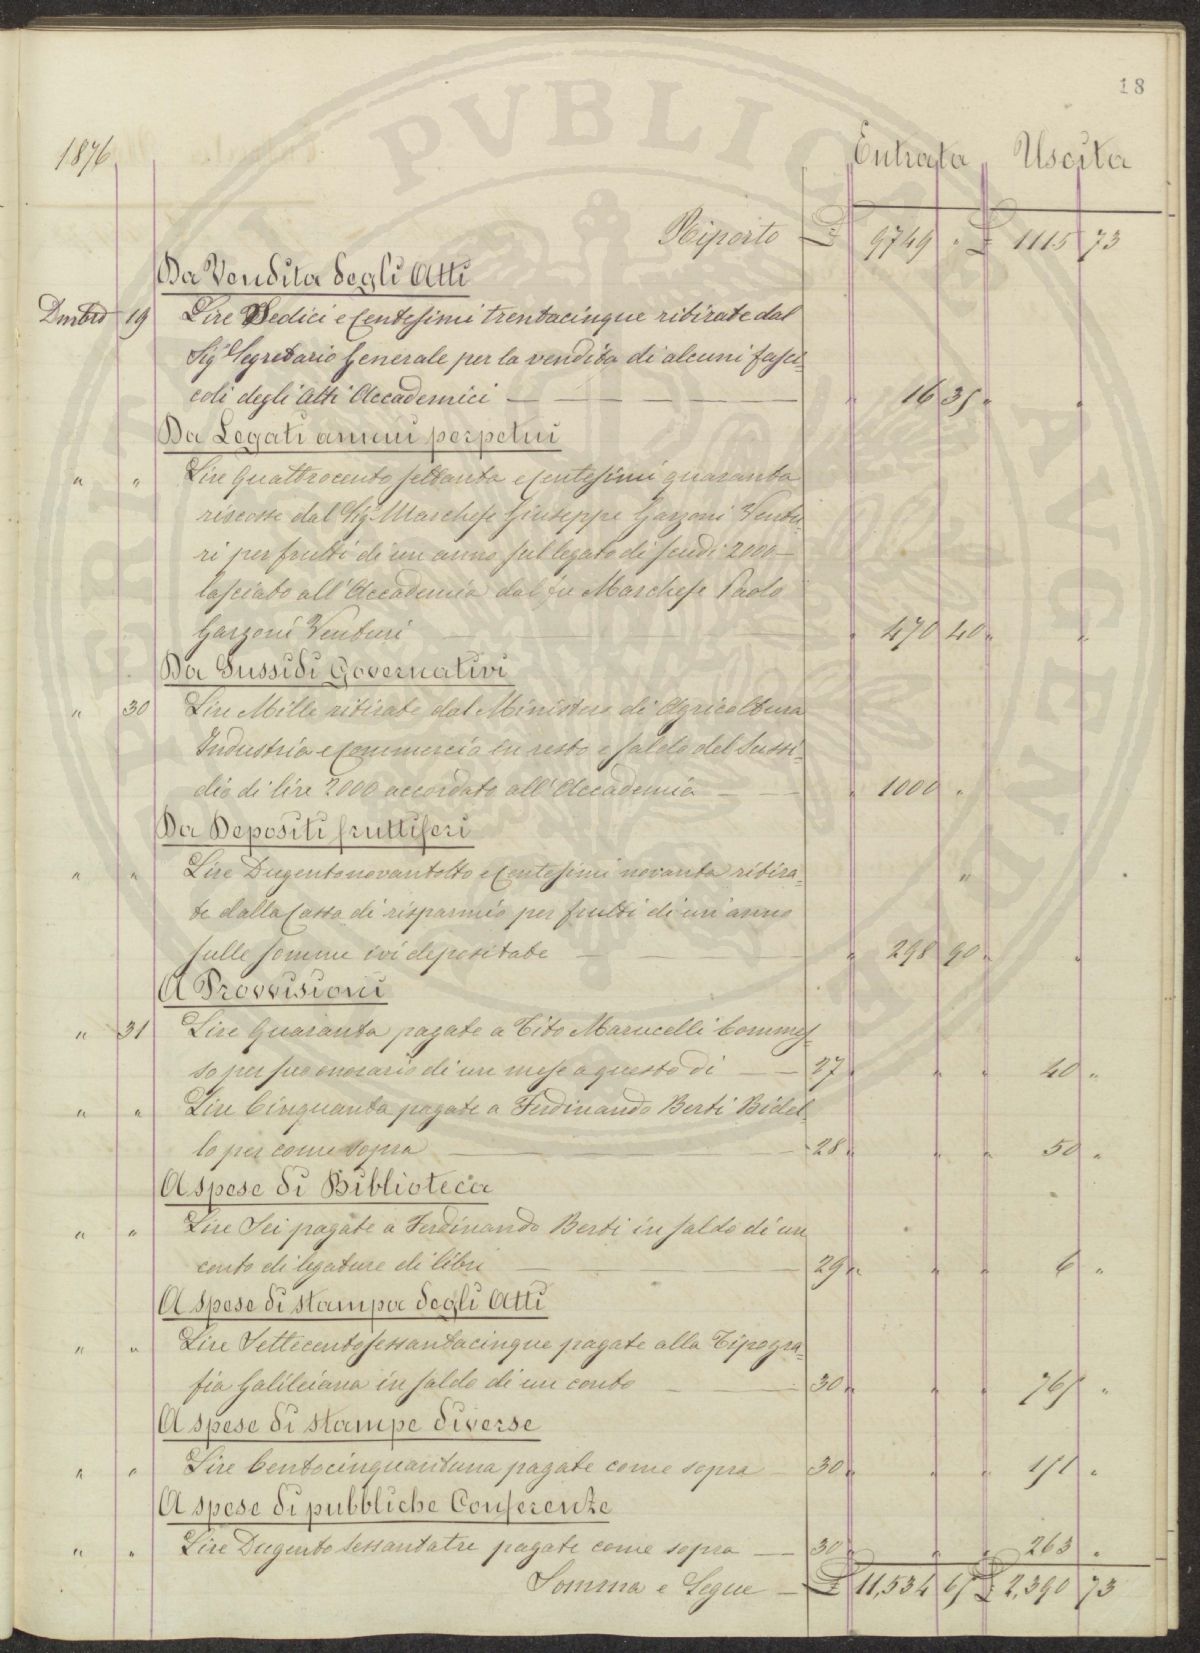 18
1876 Entrata Uscita
Riporto £ 9749 " £ 1115 73
Da Vendita degli Atti
Dmbre 19 Lire Sedici e Centesimi trentacinque ritirate dal
Sigr Segretario Generale per la vendita di alcuni fasci=
coli degli Atti Accademici — " 16 35 " "
Da Legati annui perpetui
" " Lire Quattrocento settanta e Centesimi quaranta
riscosse dal Sigr Marchese Giuseppe Garzoni Ventu=
ri per frutti di un anno sul legato di scudi 2000 —
lasciato all'Accademia dal fu Marchese Paolo
Garzoni Venturi — " 470 40 " "
Da Sussidi Governativi
" 30 Lire Mille ritirate dal Ministero di Agricoltura
Industria e Commercio in resto e saldo del Sussi=
dio di lire 2000 accordato all'Accademia — " 1000 "
Da Depositi fruttiferi
" " Lire Dugentonovantotto e Centesimi novanta ritira= "
te dalla Cassa di risparmio per frutti di un'anno
sulle somme ivi depositate — " 298 90 " "
A Provvisioni
" 31 Lire Quaranta pagate a Tito Marucelli Commes=
so per suo onorario di un mese a questo dì — 27 " " " 40 "
" " Lire Cinquanta pagate a Ferdinando Berti Bidel=
lo per come sopra — 28 " " " 50 "
A spese di Biblioteca
" " Lire Sei pagate a Ferdinando Berti in saldo di un
conto di legature di libri — 29 " " " 6 "
A spese di stampa degli Atti
" " Lire Settecentosessantacinque pagate alla Tipogra=
fia Galileiana in saldo di un conto — 30 " " " 765 "
A spese di stampe diverse
" " Lire Centocinquantuna pagate come sopra 30 " " " 151 "
A spese di pubbliche Conferenze
" " Lire Dugento sessantatre pagate come sopra — 30 " " " 263 "
Somma e Segue — £ 11,534 65 £ 2,390 73